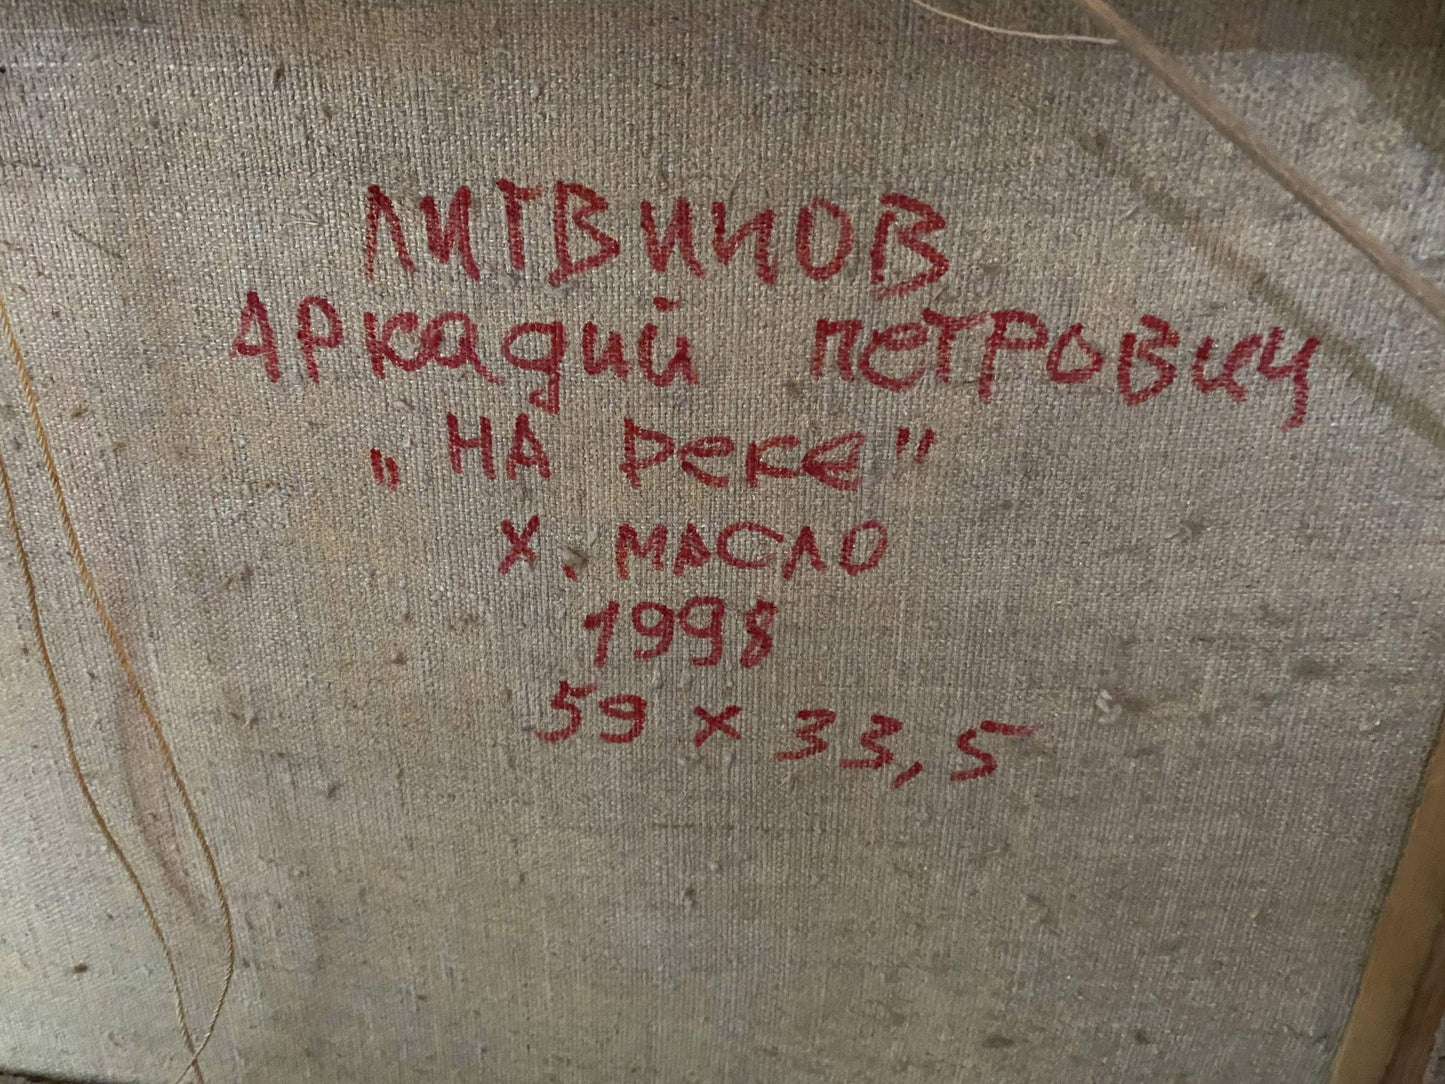 ЛИТВИНОВ
Аркадий Петрович
„На реке"
х. масло
1998
59 х 33,5